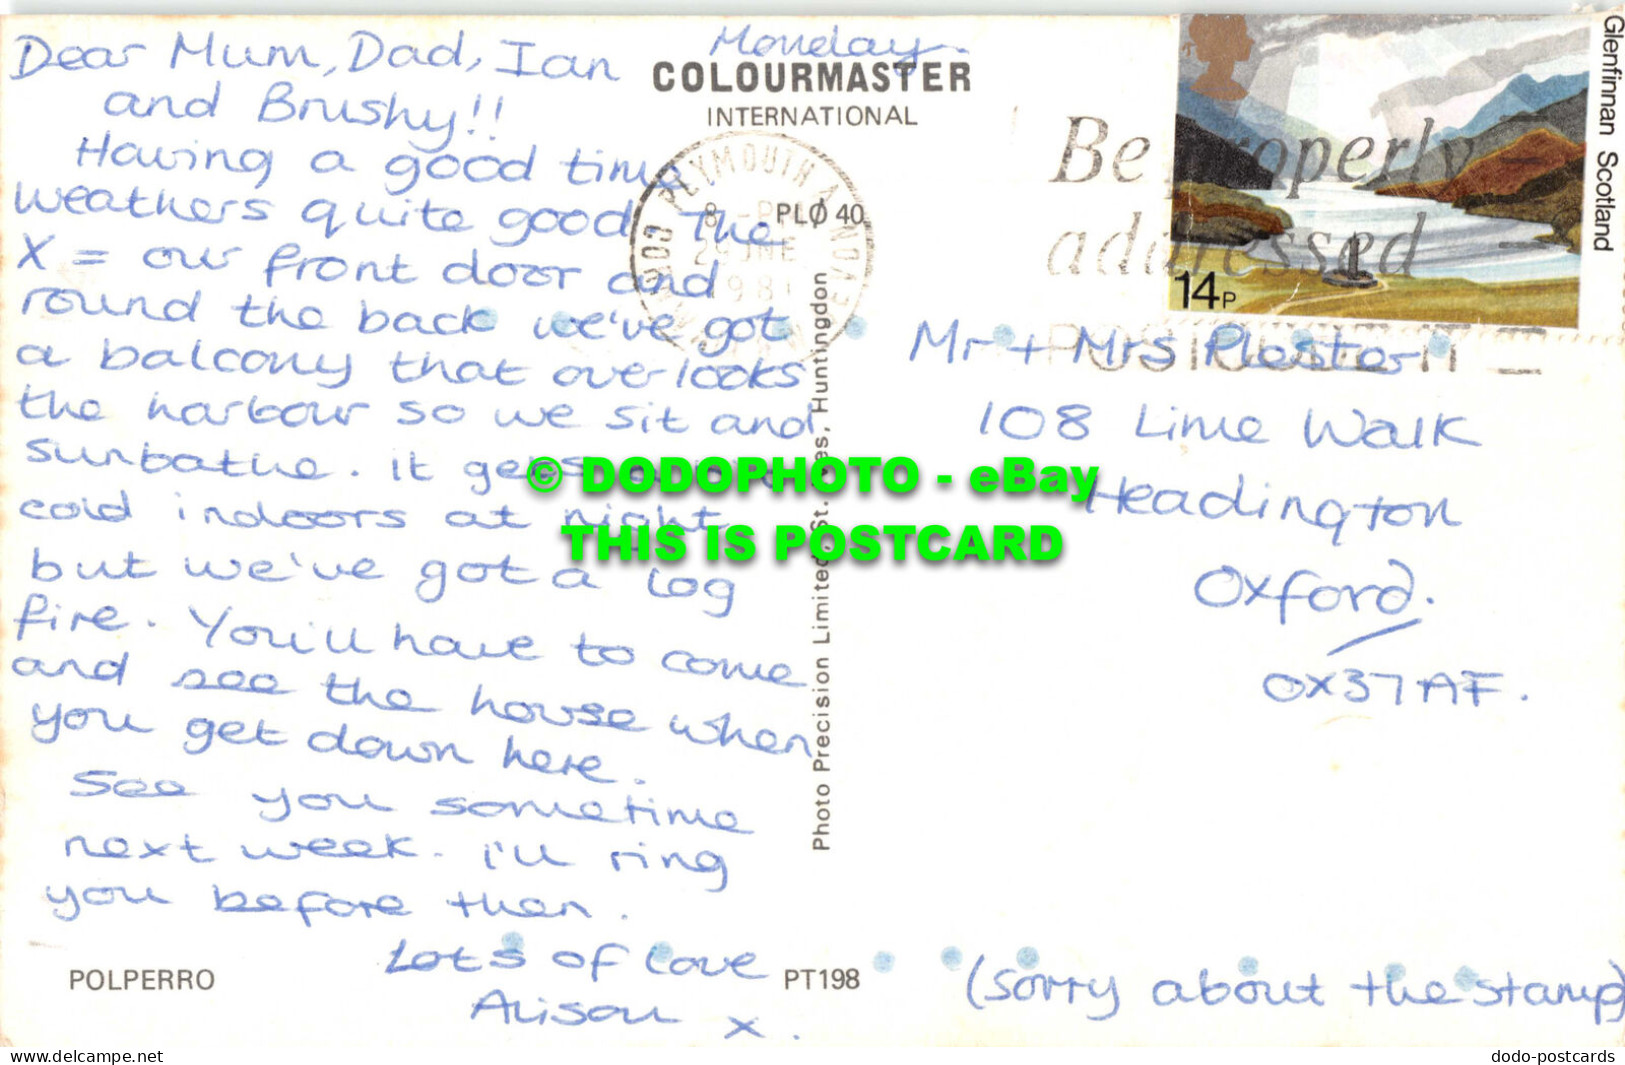 Monday.
Dear Mum, Dad, Ian
and Brushy!!
Having a good time
weathers quite good. The
X = our front door and
round the back we've got
a balcony that overlooks
the harbour so we sit and
sunbathe. it gets
cold indoors at night
but we've got a log
fire. You'll have to come
and see the house when
you get down here.
See you sometime
next week. i'll ring
you before then.
Lots of love
Alison x.
POLPERRO
PT198
COLOURMASTER
INTERNATIONAL
PLYMOUTH & DEVON
8 PLØ 40
29 JNE
1981
Photo Precision Limited, St. Ives, Huntingdon
Be properly
addressed
Glenfinnan Scotland
14P
Mr + Mrs Plester
108 Lime Walk
Headington
Oxford.
OX37AF.
(sorry about the stamp)
© DODOPHOTO - eBay
THIS IS POSTCARD
www.delcampe.net
dodo-postcards